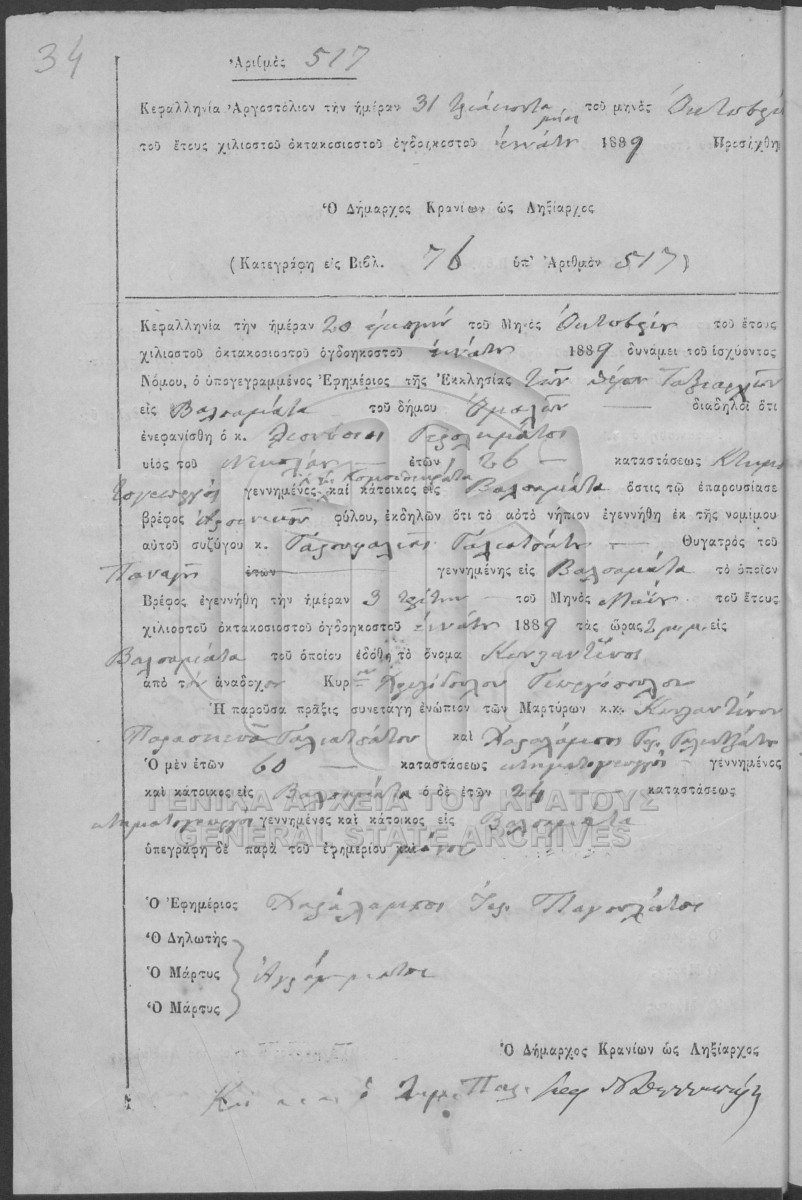 34
Ἀριθμὸς 517
Κεφαλληνία Ἀργοστόλιον τὴν ἡμέραν 31 τριάκοντα μίαν τοῦ μηνὸς Ὀκτωβρίου
τοῦ ἔτους χιλιοστοῦ ὀκτακοσιοστοῦ ὀγδοηκοστοῦ ἐννάτου 1889 Προσήχθη
Ὁ Δήμαρχος Κρανίων ὡς Ληξίαρχος
(Κατεγράφη εἰς Βιβλ. 76 ὑπ' Ἀριθμὸν 517)
Κεφαλληνία τὴν ἡμέραν 20 εἰκοστὴν τοῦ Μηνὸς Ὀκτωβρίου τοῦ ἔτους
χιλιοστοῦ ὀκτακοσιοστοῦ ὀγδοηκοστοῦ ἐννάτου 1889 δυνάμει τοῦ ἰσχύοντος
Νόμου, ὁ ὑπογεγραμμένος Ἐφημέριος τῆς Ἐκκλησίας τῶν Ταξιαρχῶν
εἰς Βαλσαμάτα τοῦ δήμου Ὁμαλῶν διαδηλοῖ ὅτι
ἐνεφανίσθη ὁ κ. Διονύσιος Γερολυμάτος
υἱὸς τοῦ Νικολάου ἐτῶν 26 καταστάσεως Κτημα
τογεωργὸς γεννημένος καὶ κάτοικος εἰς Βαλσαμάτα ὅστις τῷ ἐπαρουσίασε
βρέφος ἀρσενικοῦ φύλου, ἐκδηλῶν ὅτι τὸ αὐτὸ νήπιον ἐγεννήθη ἐκ τῆς νομίμου
αὐτοῦ συζύγου κ. Γαρουφαλιᾶς Γαλιατσάτου Θυγατρὸς τοῦ
Παναγῆ ἐτῶν γεννημένης εἰς Βαλσαμάτα τὸ ὁποῖον
Βρέφος ἐγεννήθη τὴν ἡμέραν 3 τρίτην τοῦ Μηνὸς Μαΐου τοῦ ἔτους
χιλιοστοῦ ὀκτακοσιοστοῦ ὀγδοηκοστοῦ ἐννάτου 1889 τὰς ὥρας 2 μ.μ. εἰς
Βαλσαμάτα τοῦ ὁποίου ἐδόθη τὸ ὄνομα Κωνσταντῖνος
ἀπὸ τὴν ἀνάδοχον Κυρ Γεωργόπουλου
Ἡ παροῦσα πρᾶξις συνετάγη ἐνώπιον τῶν Μαρτύρων κ.κ. Κωνσταντίνου
Παρασκευᾶ Γαλιατσάτου καὶ Χαραλάμπους Γερ. Γαλιατσάτου
Ὁ μὲν ἐτῶν 60 καταστάσεως κτηματογεωργὸς γεννημένος
καὶ κάτοικος εἰς Βαλσαμάτα ὁ δὲ ἐτῶν 24 καταστάσεως
κτηματογεωργὸς γεννημένος καὶ κάτοικος εἰς Βαλσαμάτα
ὑπεγράφη δὲ παρὰ τοῦ ἐφημερίου καὶ μόνου
ΓΕΝΙΚΑ ΑΡΧΕΙΑ ΤΟΥ ΚΡΑΤΟΥΣ
GENERAL STATE ARCHIVES
Ὁ Ἐφημέριος Χαράλαμπος Ἱερ. Παγουλάτος
Ὁ Δηλωτὴς
Ὁ Μάρτυς Ἀγράμματοι
Ὁ Μάρτυς
Ὁ Δήμαρχος Κρανίων ὡς Ληξίαρχος